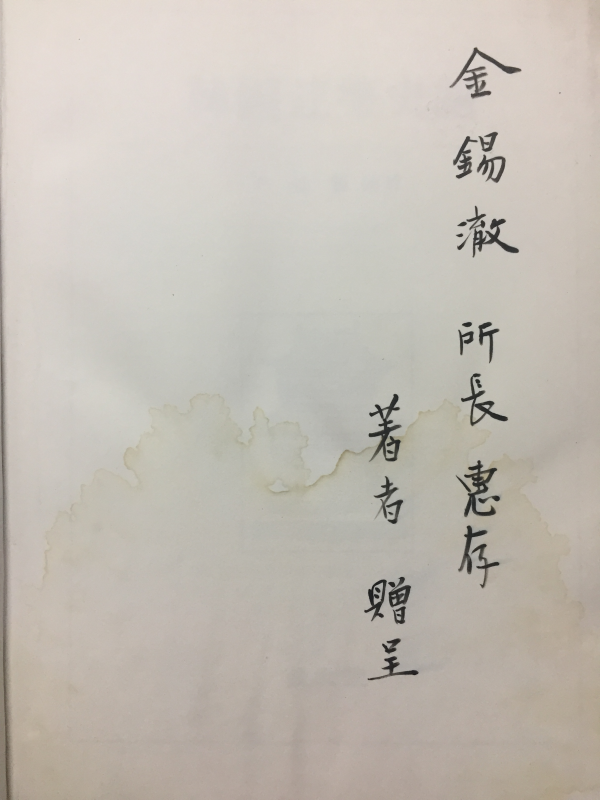 金錫澈 所長 惠存
著者 贈呈